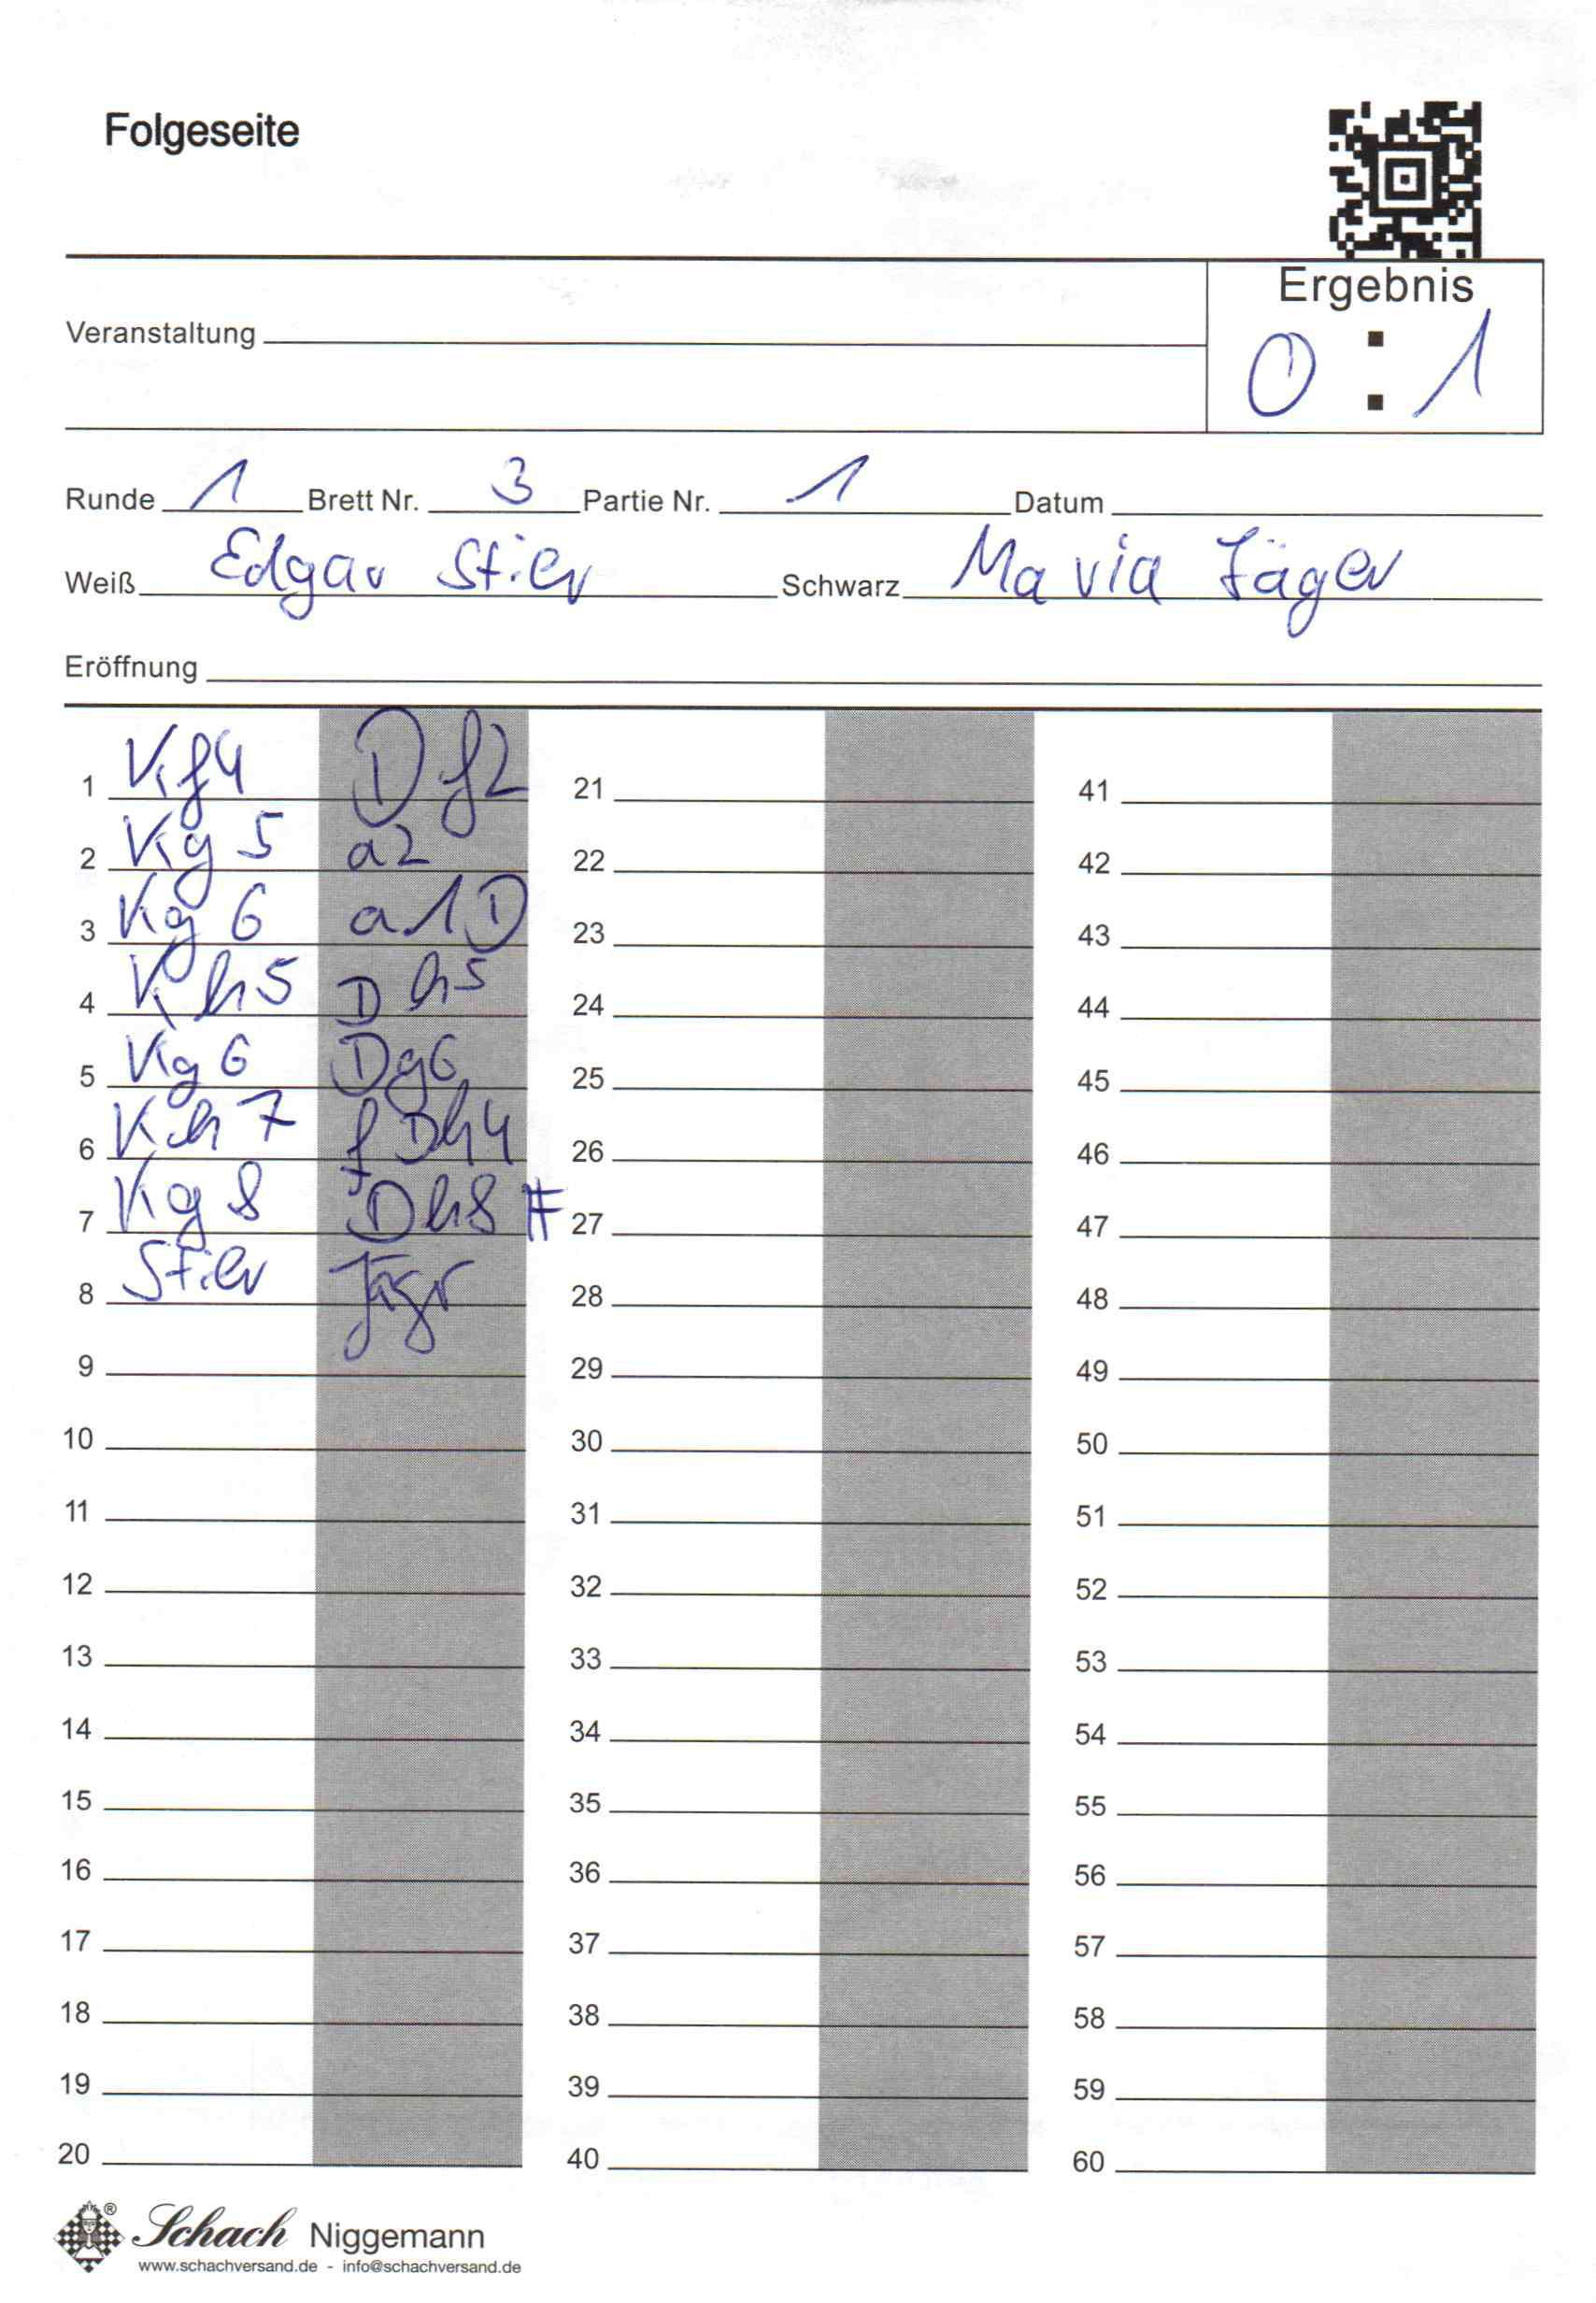 Folgeseite
Ergebnis
Veranstaltung
0 : 1
Runde 1 Brett Nr. 3 Partie Nr. 1 Datum
Weiß Edgar Stier Schwarz Maria Jäger
Eröffnung
1 Kf4 Df2 21 41
2 Kg5 a2 22 42
3 Kg6 a1D 23 43
4 Kh5 Dh5 24 44
5 Kg6 Dg6 25 45
6 Kh7 fDh4 26 46
7 Kg8 Dh8# 27 47
8 Stier Jäger 28 48
9 29 49
10 30 50
11 31 51
12 32 52
13 33 53
14 34 54
15 35 55
16 36 56
17 37 57
18 38 58
19 39 59
20 40 60
® Schach Niggemann
www.schachversand.de - info@schachversand.de